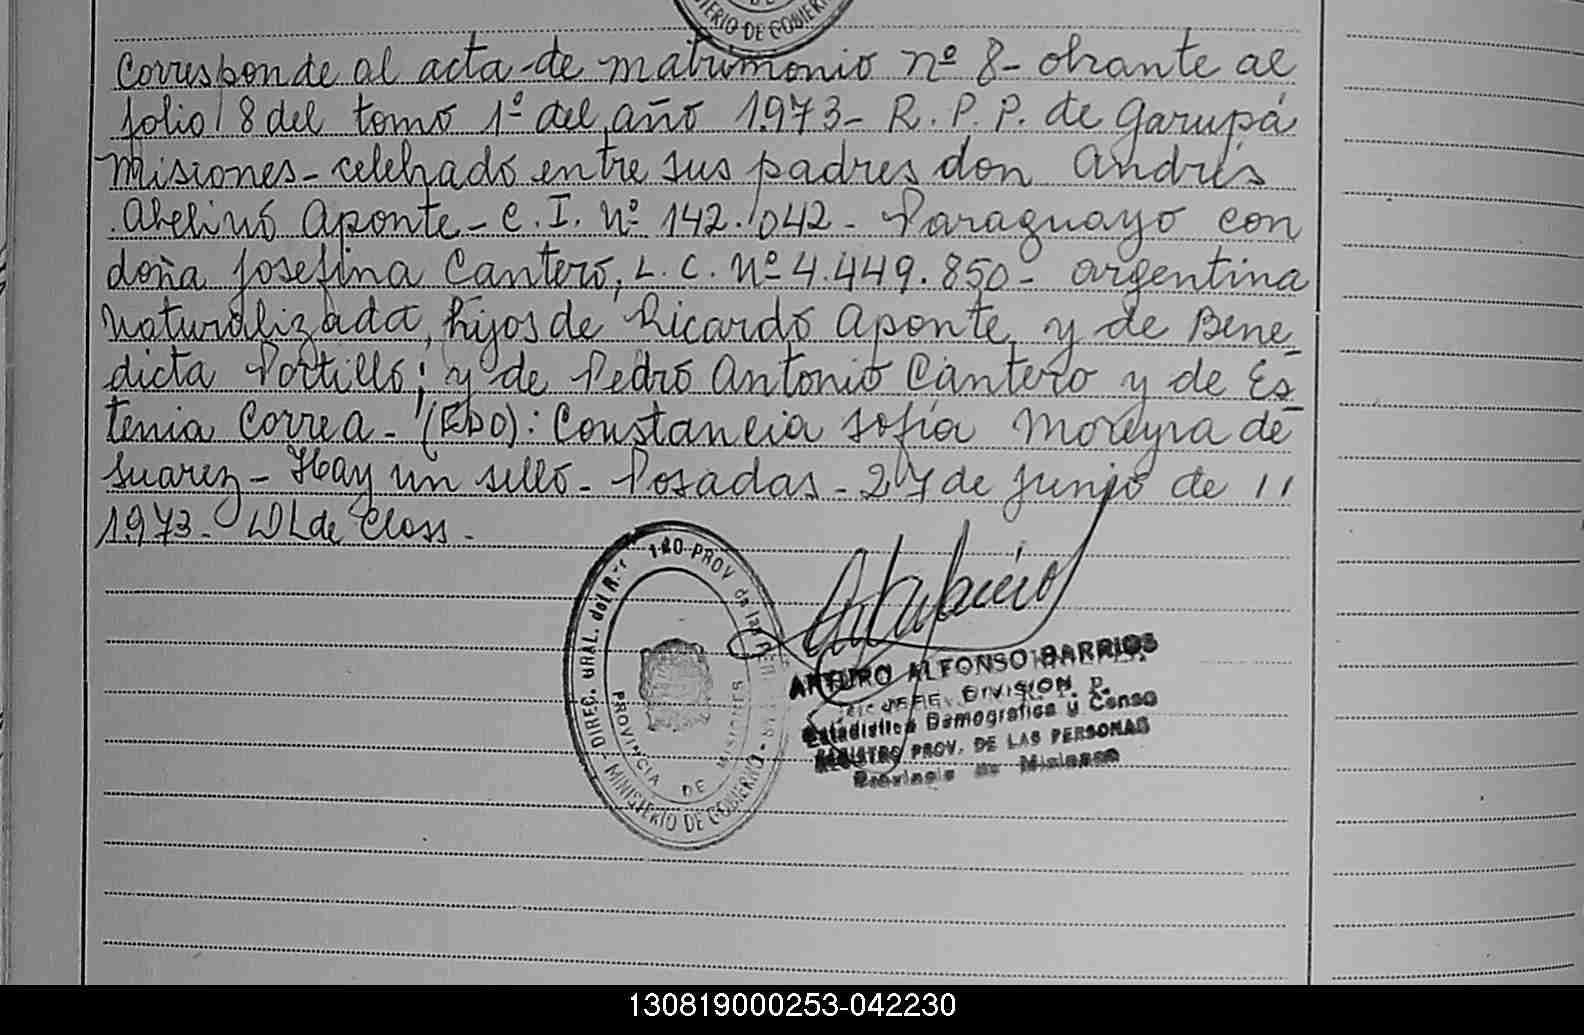 MINISTERIO DE GOBIERNO
Corresponde al acta de matrimonio nº 8- obrante al
folio 8 del tomo 1º del año 1973- R. P. P. de Garupá
Misiones- celebrado entre sus padres don Andrés
Abelino Aponte- C. I. Nº 142.042- Paraguayo con
doña Josefina Cantero, L. C. Nº 4.449.850- argentina
naturalizada, hijos de Ricardo Aponte y de Bene_
dicta Portillo; y de Pedro Antonio Cantero y de Es_
tenia Correa- (Fdo): Constancia Sofía Moreyra de
Suarez- Hay un sello- Posadas- 27 de Junio de //
1973- de Closs.
DIREC. GRAL. del PROV de las
PROVINCIA DE MISIONES
MINISTERIO DE GOBIERNO
ARTURO ALFONSO BARRIOS
JEFE DIVISION
Estadistica Demografica y Censo
REGISTRO PROV. DE LAS PERSONAS
Provincia de Misiones
130819000253-042230